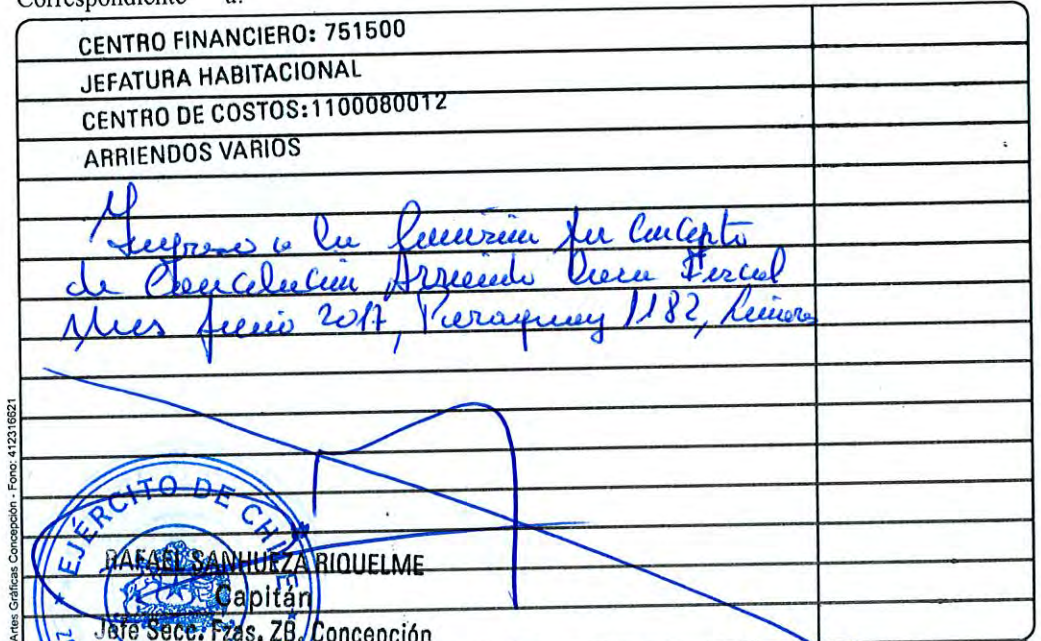 Correspondiente a:
CENTRO FINANCIERO: 751500
JEFATURA HABITACIONAL
CENTRO DE COSTOS:1100080012
ARRIENDOS VARIOS
Ingreso a la por Concepto
de Cancelación Arriendo Casa Fiscal
Mes Junio 2017, Paraguay 1182, Linares
Artes Gráficas Concepción - Fono: 412316621
EJÉRCITO DE CHILE
RAFAEL SANHUEZA RIQUELME
Capitán
Jefe Secc. Fzas. ZB. Concepción